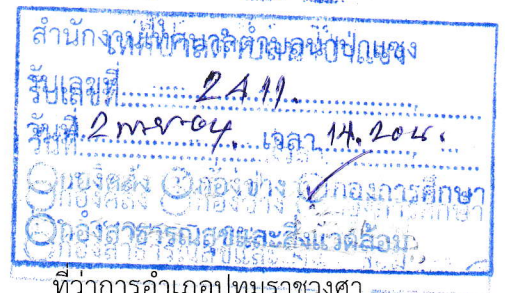 สำนักงานเทศบาลตำบล
รับเลขที่ 2411.
วันที่ 2 เวลา 14.20 น.
กองคลัง กองช่าง กองการศึกษา
กองสาธารณสุขและสิ่งแวดล้อม
ที่ว่าการอำเภอปทุมราชวงศา